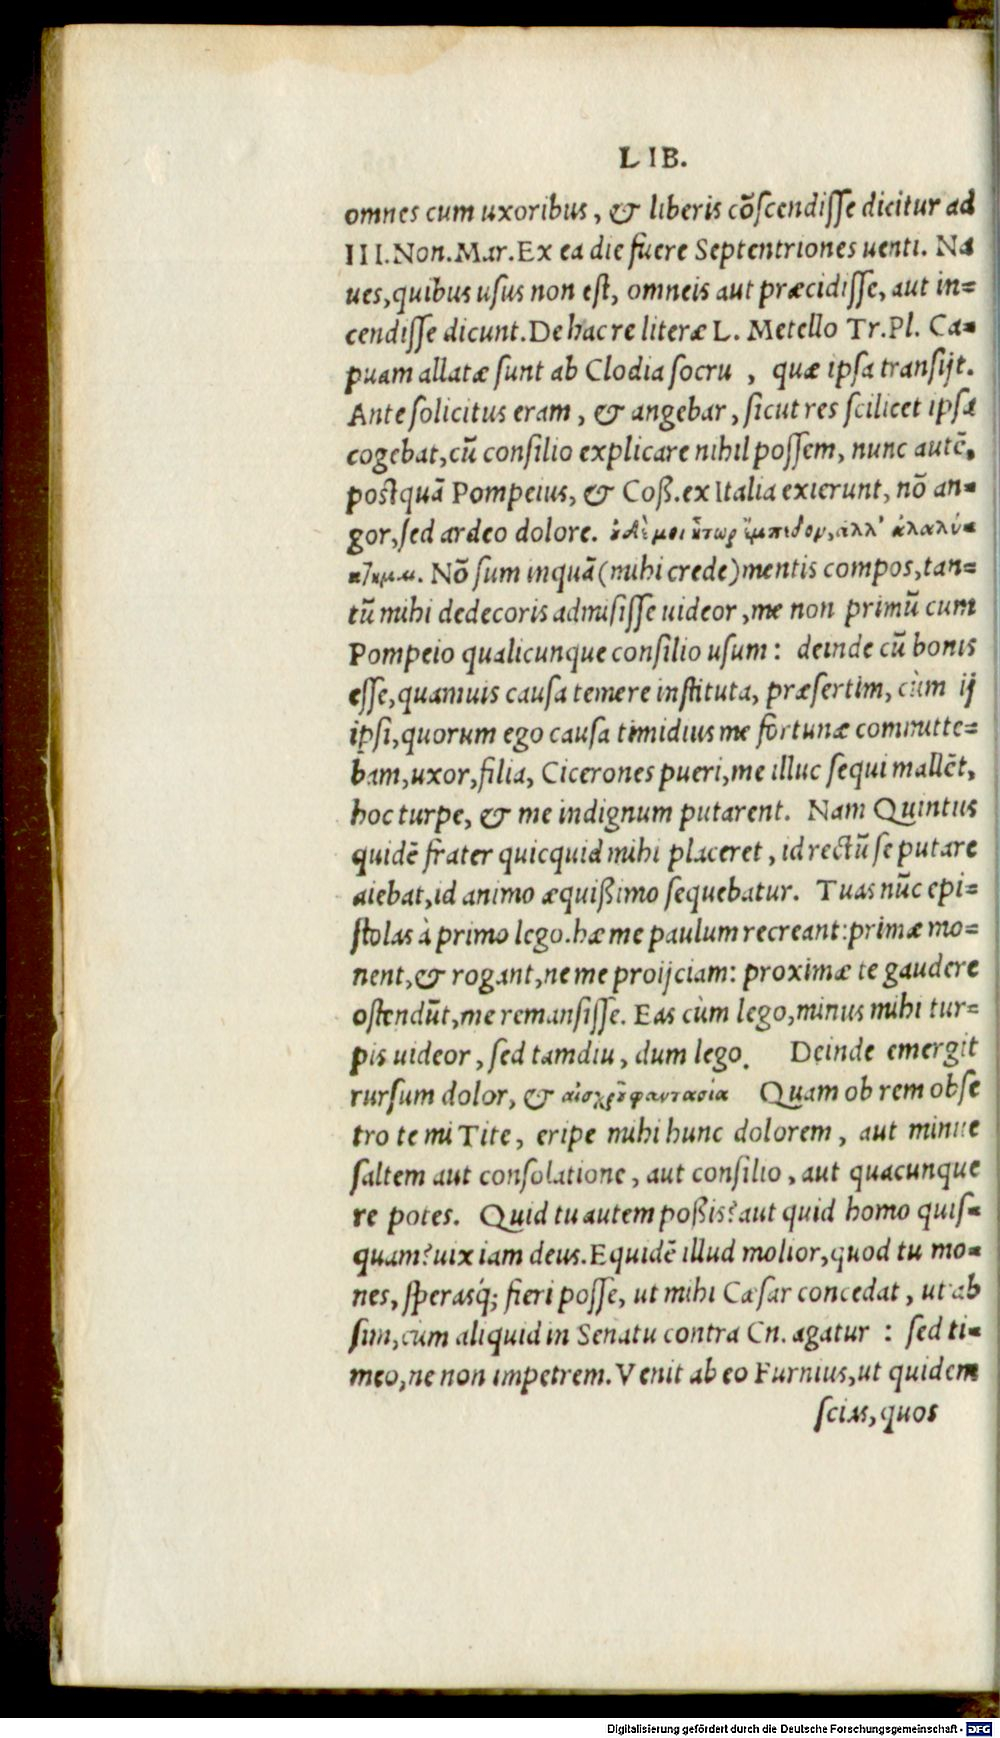 LIB.
omnes cum uxoribus, & liberis cõſcendiſſe dicitur ad
III.Non.Mar.Ex ea die fuere Septentriones uenti. Na
ues,quibus uſus non eſt, omneis aut præcidiſſe, aut in=
cendiſſe dicunt.De hac re literæ L. Metello Tr.Pl. Ca=
puam allatæ ſunt ab Clodia ſocru , quæ ipſa tranſijt.
Ante ſolicitus eram, & angebar, ſicut res ſcilicet ipſa
cogebat,cũ conſilio explicare nihil poſſem, nunc autẽ,
poſtquã Pompeius, & Coß.ex Italia exierunt, nõ an=
gor,ſed ardeo dolore. ἀλλ'
Nõ ſum inquã(mihi crede)mentis compos,tan=
tũ mihi dedecoris admiſiſſe uideor,me non primũ cum
Pompeio qualicunque conſilio uſum: deinde cũ bonis
eſſe,quamuis cauſa temere inſtituta, præſertim, cùm ij
ipſi,quorum ego cauſa timidius me fortunæ committe=
bam,uxor,filia, Cicerones pueri,me illuc ſequi mallẽt,
hoc turpe, & me indignum putarent. Nam Quintus
quidẽ frater quicquid mihi placeret, id rectũ ſe putare
aiebat,id animo æquißimo ſequebatur. Tuas nũc epi=
ſtolas à primo lego.hæ me paulum recreant:primæ mo=
nent,& rogant,ne me proijciam: proximæ te gaudere
oſtendũt,me remanſiſſe. Eas cùm lego,minus mihi tur=
pis uideor, ſed tamdiu, dum lego. Deinde emergit
rurſum dolor, & αἰσχροῦ φαντασία Quam ob rem obſe
tro te mi Tite, eripe mihi hunc dolorem, aut minue
ſaltem aut conſolatione, aut conſilio, aut quacunque
re potes. Quid tu autem poßis?aut quid homo quiſ=
quam?uix iam deus.Equidẽ illud molior,quod tu mo=
nes, ſperasq́; fieri poſſe, ut mihi Cæſar concedat, ut ab
ſim,cùm aliquid in Senatu contra Cn. agatur : ſed ti=
meo,ne non impetrem.Venit ab eo Furnius,ut quidem
ſcias,quos
Digitalisierung gefördert durch die Deutsche Forschungsgemeinschaft - DFG